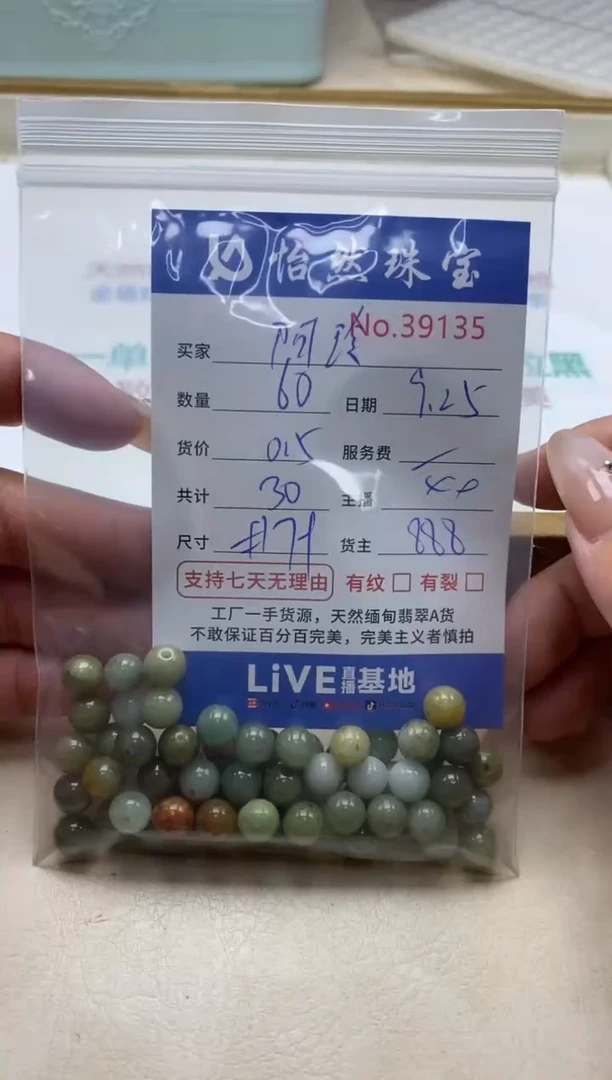 怡然珠宝
No.39135
买家 阿玲
数量 60 日期 9.25
货价 0.5 服务费
共计 30 主播
尺寸 货主 888
支持七天无理由 有纹 有裂
工厂一手货源，天然缅甸翡翠A货
不敢保证百分百完美，完美主义者慎拍
LiVE直播基地